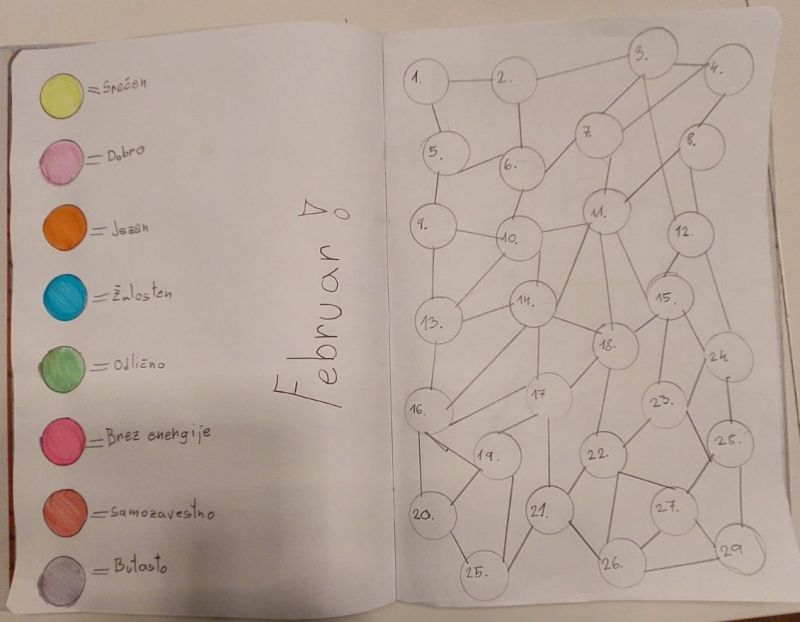 = Srečen
= Dobro
= Jezen
= Žalosten
= Odlično
= Brez energije
= Samozavestno
= Butasto
Februar!
1. 2. 3. 4.
5. 6. 7. 8.
9. 10. 11. 12.
13. 14. 18. 15.
24.
16. 17 23.
19. 22. 25.
20. 21. 27.
25. 26. 29